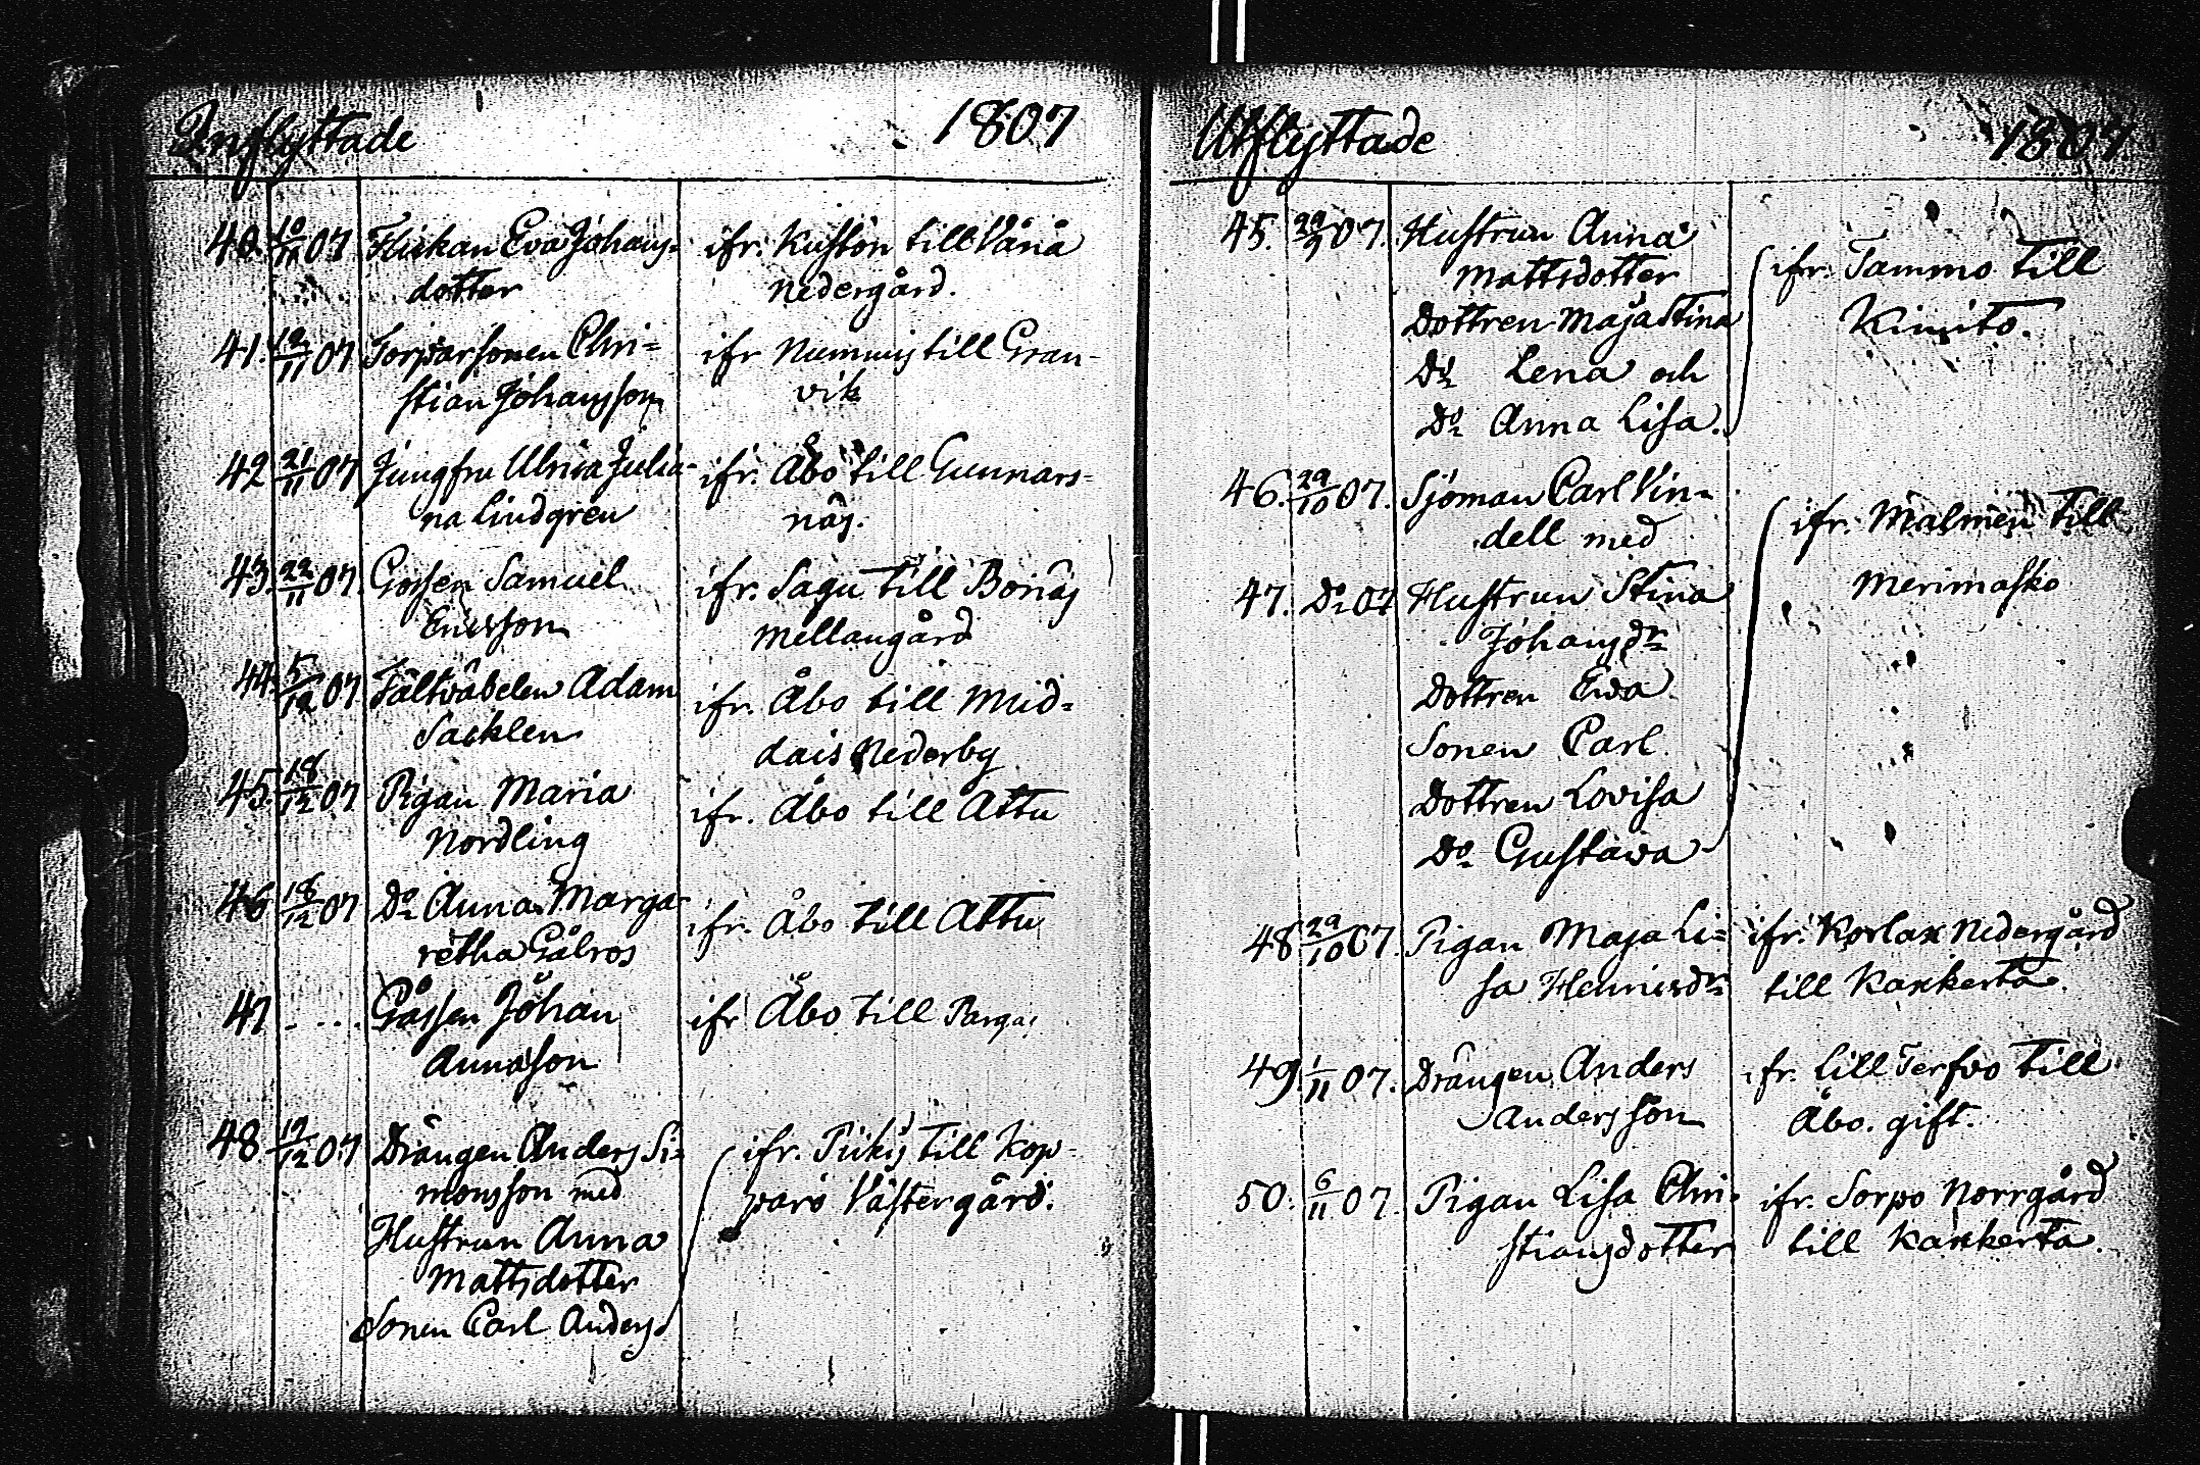 Inflyttade 1807
40. 10/11 07 Flickan Eva Johans-
dotter
ifr. Kustön till Vänå
nedergård.
41. 12/11 07 Torparsonen Chri=
stian Johansson
ifr Nummis till Gran-
vik
42 21/11 07 Jungfru Ulrica Julia-
na Lindgren
ifr. Åbo till Gunnars-
näs.
43. 22/11 07. Gossen Samuel
Ericsson
ifr. Sagu till Bonäs
mellangård
44 5/12 07. Fältväbelen Adam
Sacklen
ifr. Åbo till Mid=
dais Nederby
45. 18/12 07 Pigan Maria
Nordling
ifr. Åbo till Attu
46 18/12 07 Do Anna Marga-
retha Gålros
ifr. Åbo till Attu
47 - . . . Gåssen Johan
Annasson
ifr Åbo till Pargas
48. 19/12 07 Drängen Anders Si=
monsson med
Hustrun Anna
Mattsdotter
Sonen Carl Anders
ifr. Pikis till Kop-
parö Västergård.
Utflyttade 1807.
45. 29/9 07. Hustrun Anna
Mattsdotter
Dottren Maja Stina
Do Lena och
Do Anna Lisa.
ifr. Tammo till
Kimito.
46. 29/10 07. Sjöman Carl Vin-
dell med
47. Do 07 Hustrun Stina
Johansdr
Dottren Eva
Sonen Carl
Dottren Lovisa
Do Gustava
ifr. Malmen till
Merimasko
48 29/10 07. Pigan Maja Li=
sa Henricsdr
ifr. Korlax Nedergård
till Kaxkerta.
49. 1/11 07. Drängen Anders
Andersson
ifr. Lill Terfvo till
Åbo. gift.
50. 6/11 07. Pigan Lisa Chri-
stiansdotter
ifr. Sorpo Norrgård
till Kaxkerta.